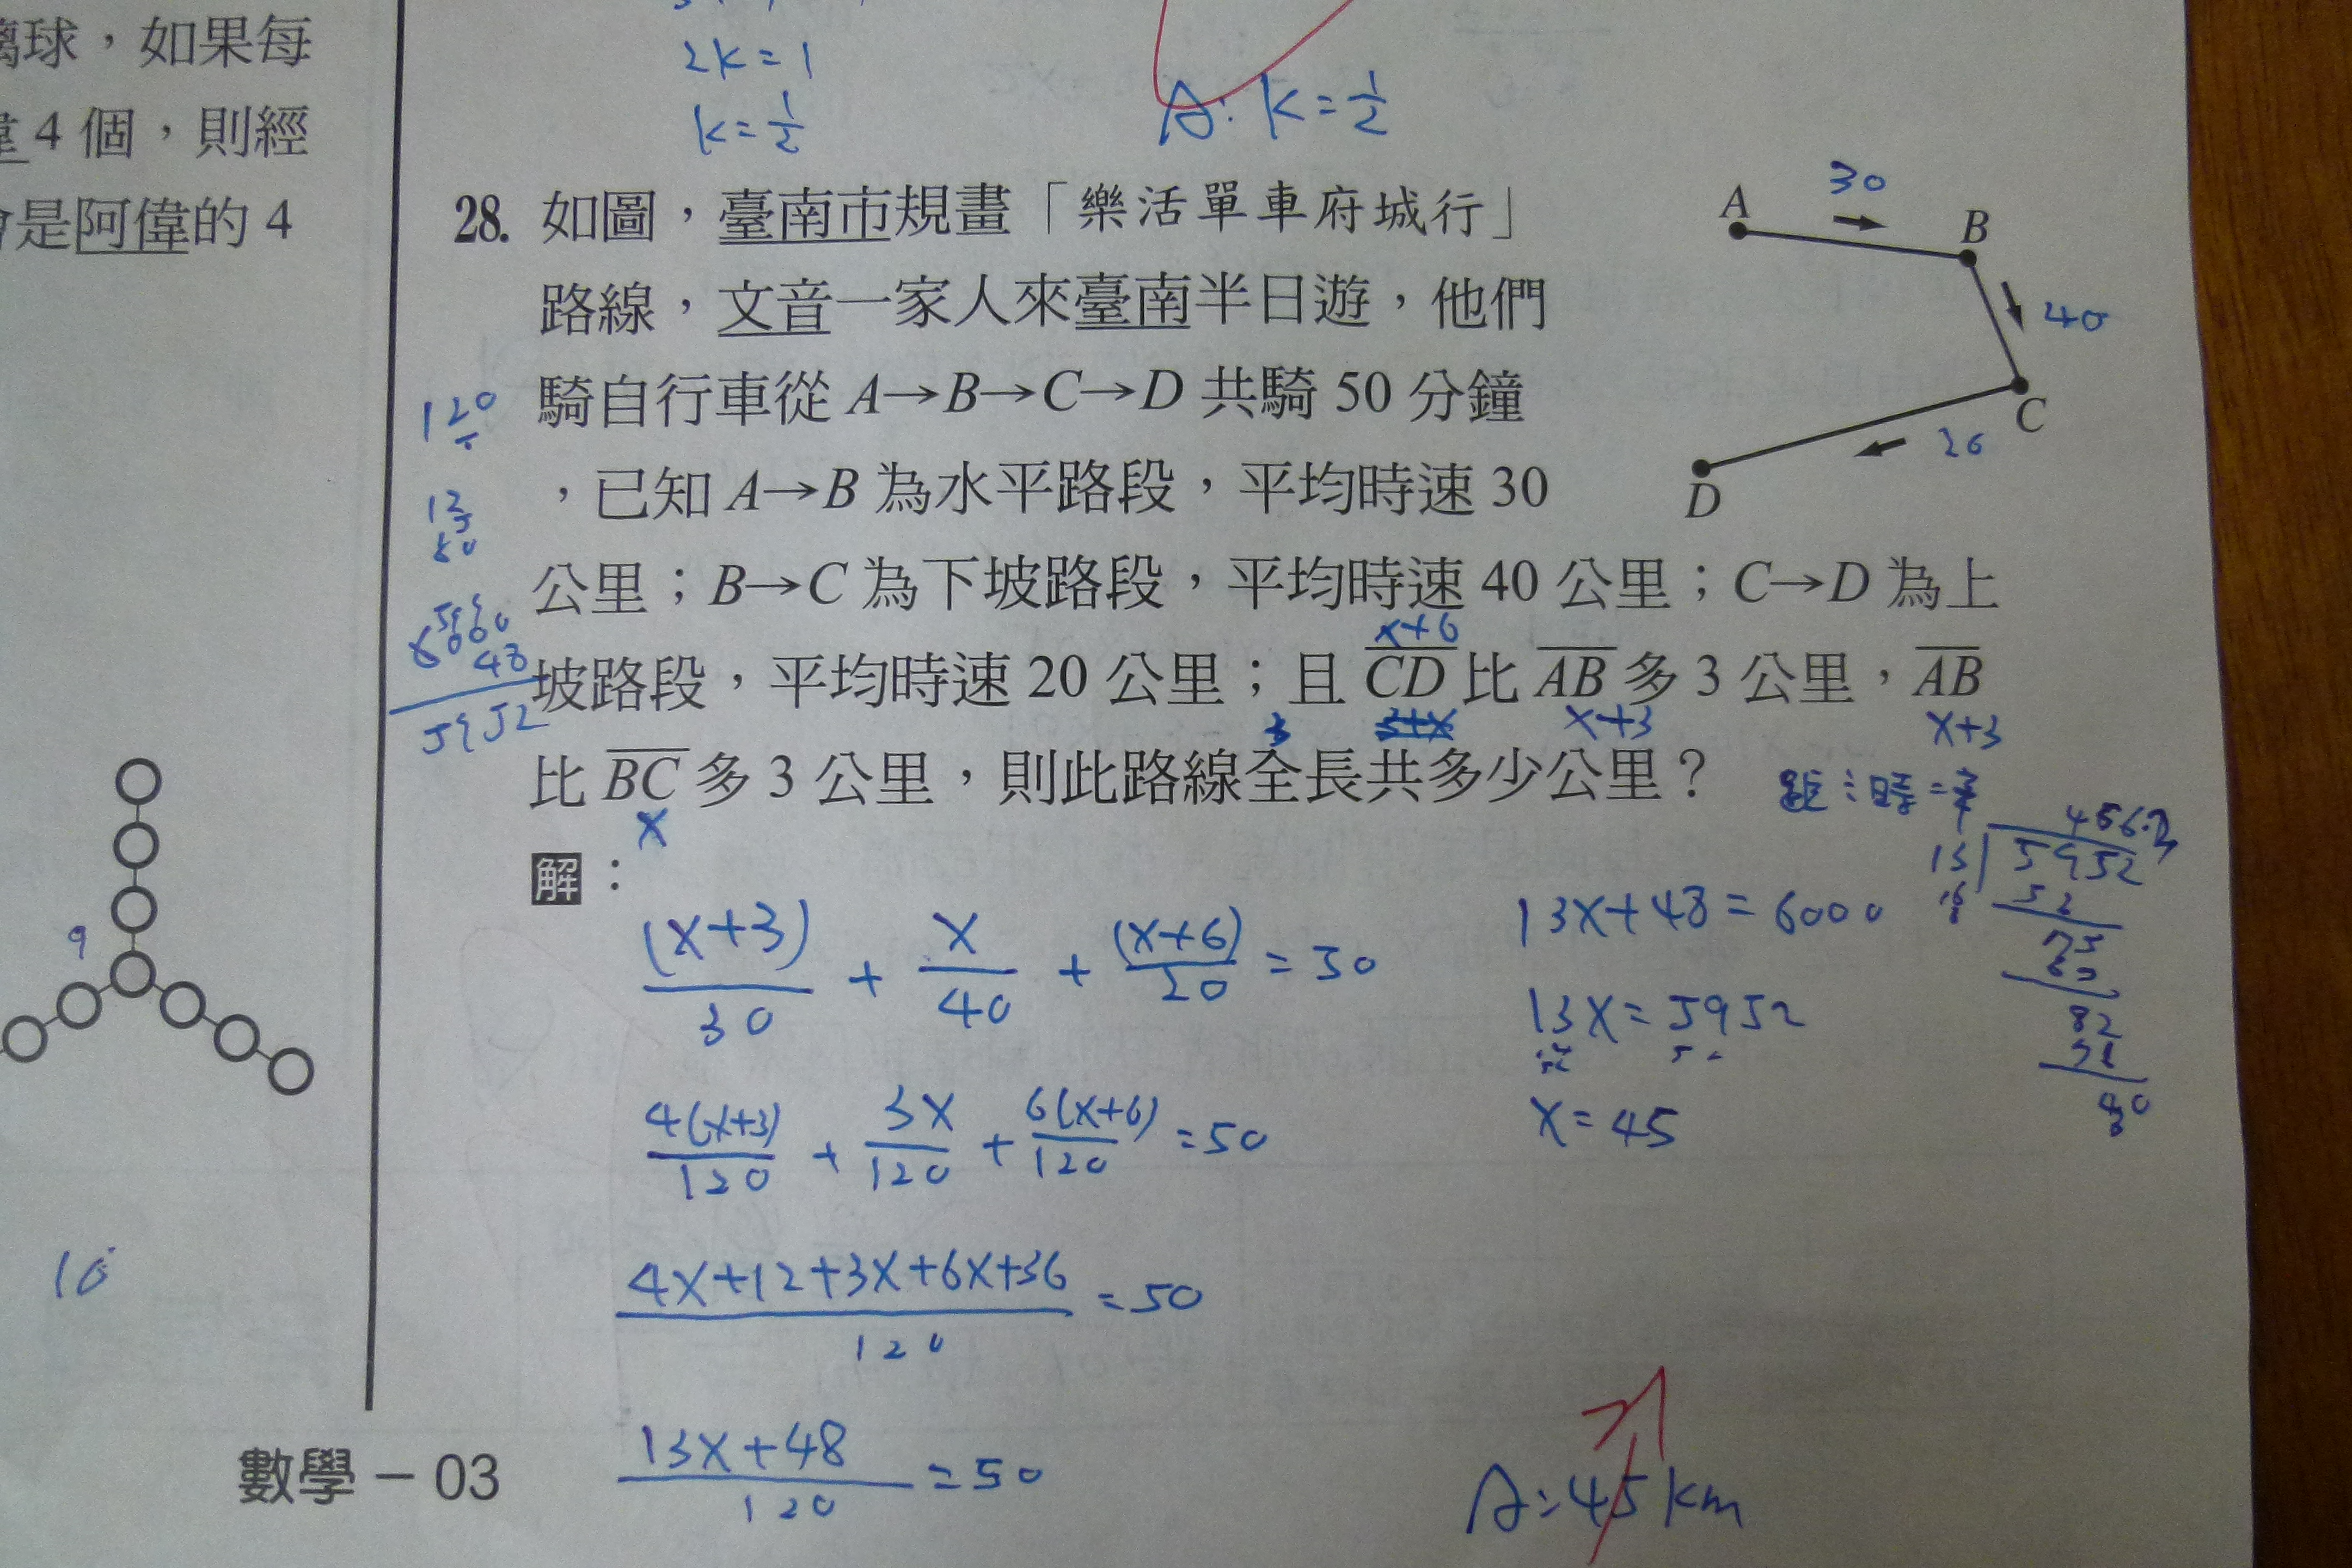 璃球，如果每
偉 4 個，則經
會是阿偉的 4
9
10
2k=1
k=1/2
A: k=1/2
28. 如圖，臺南市規畫「樂活單車府城行」
路線，文音一家人來臺南半日遊，他們
騎自行車從 A→B→C→D 共騎 50 分鐘
，已知 A→B 為水平路段，平均時速 30
公里；B→C 為下坡路段，平均時速 40 公里；C→D 為上
x+6
坡路段，平均時速 20 公里；且 CD 比 AB 多 3 公里，AB
x+3
x+3
比 BC 多 3 公里，則此路線全長共多少公里？
x
A
30
B
40
C
20
D
120
6000
48
5952
解：
(x+3)/30 + x/40 + (x+6)/20 = 50
4(x+3)/120 + 3x/120 + 6(x+6)/120 = 50
4x+12+3x+6x+36/120 = 50
13x+48/120 = 50
13x+48=6000
13x=5952
x=45
13 5952
52
A: 45 km
數學－03